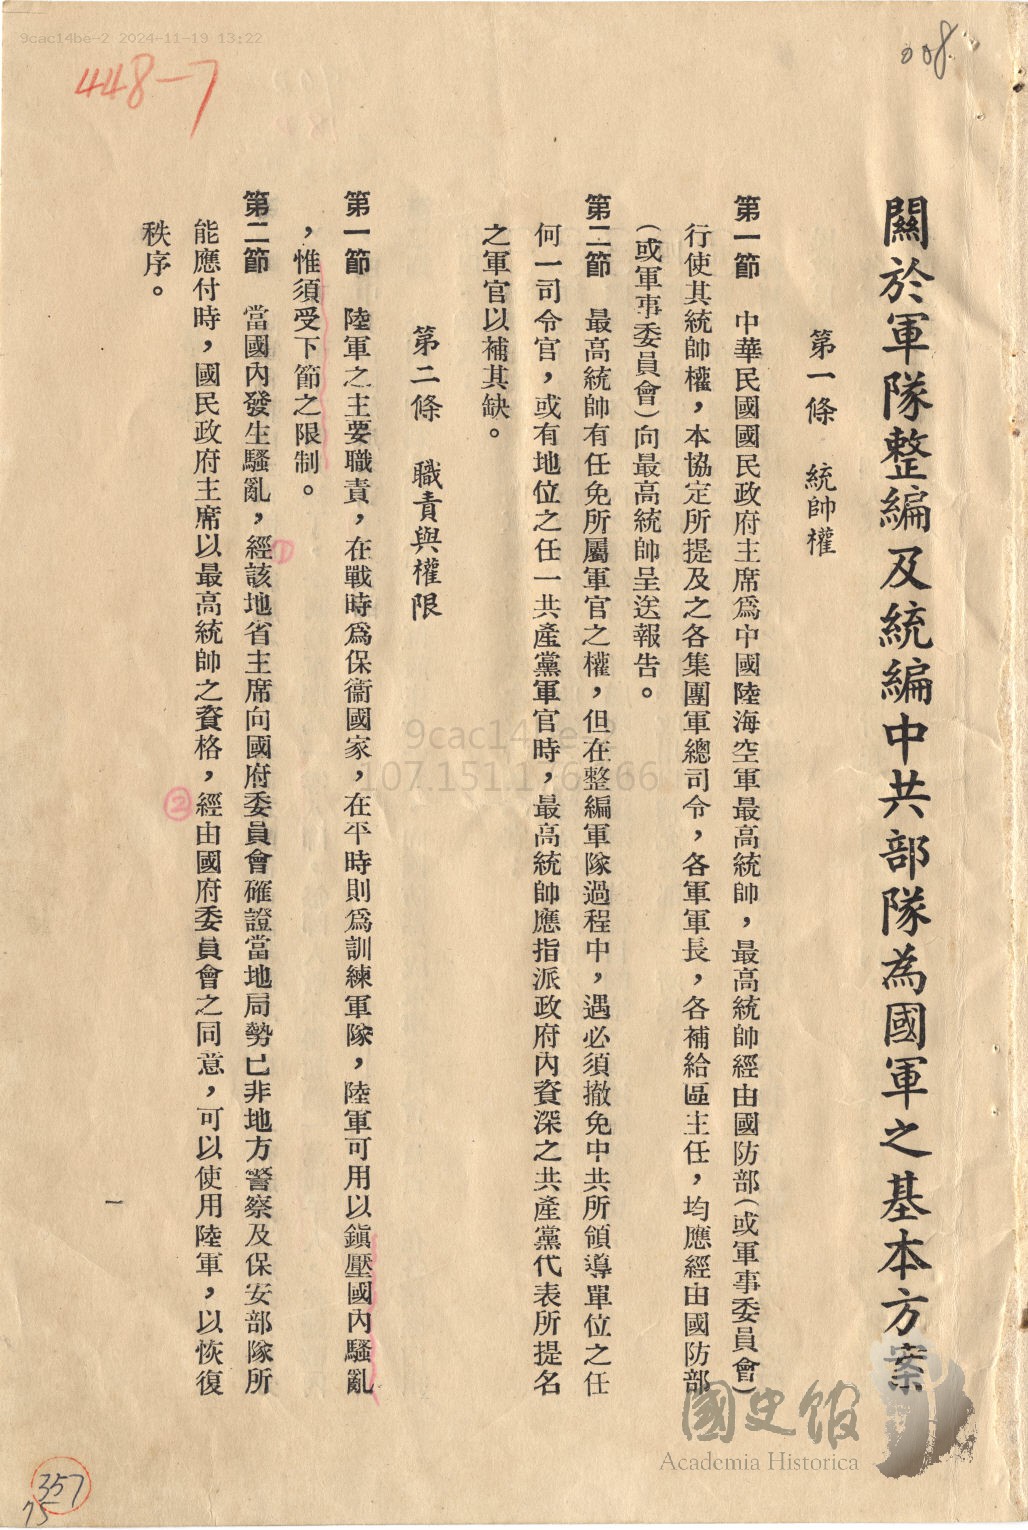 9cac14be-2 2024-11-19 13:22
448-7
008
關於軍隊整編及統編中共部隊為國軍之基本方案
第一條　統帥權
第一節　中華民國國民政府主席爲中國陸海空軍最高統帥，最高統帥經由國防部（或軍事委員會）
行使其統帥權，本協定所提及之各集團軍總司令，各軍軍長，各補給區主任，均應經由國防部
（或軍事委員會）向最高統帥呈送報告。
第二節　最高統帥有任免所屬軍官之權，但在整編軍隊過程中，遇必須撤免中共所領導單位之任
何一司令官，或有地位之任一共產黨軍官時，最高統帥應指派政府內資深之共產黨代表所提名
之軍官以補其缺。
第二條　職責與權限
第一節　陸軍之主要職責，在戰時爲保衞國家，在平時則爲訓練軍隊，陸軍可用以鎭壓國內騷亂
，惟須受下節之限制。
第二節　當國內發生騷亂，經該地省主席向國府委員會確證當地局勢已非地方警察及保安部隊所
①
能應付時，國民政府主席以最高統帥之資格，經由國府委員會之同意，可以使用陸軍，以恢復
②
秩序。
一
9cac14be-2
107.151.176.66
國史館
Academia Historica
357
75